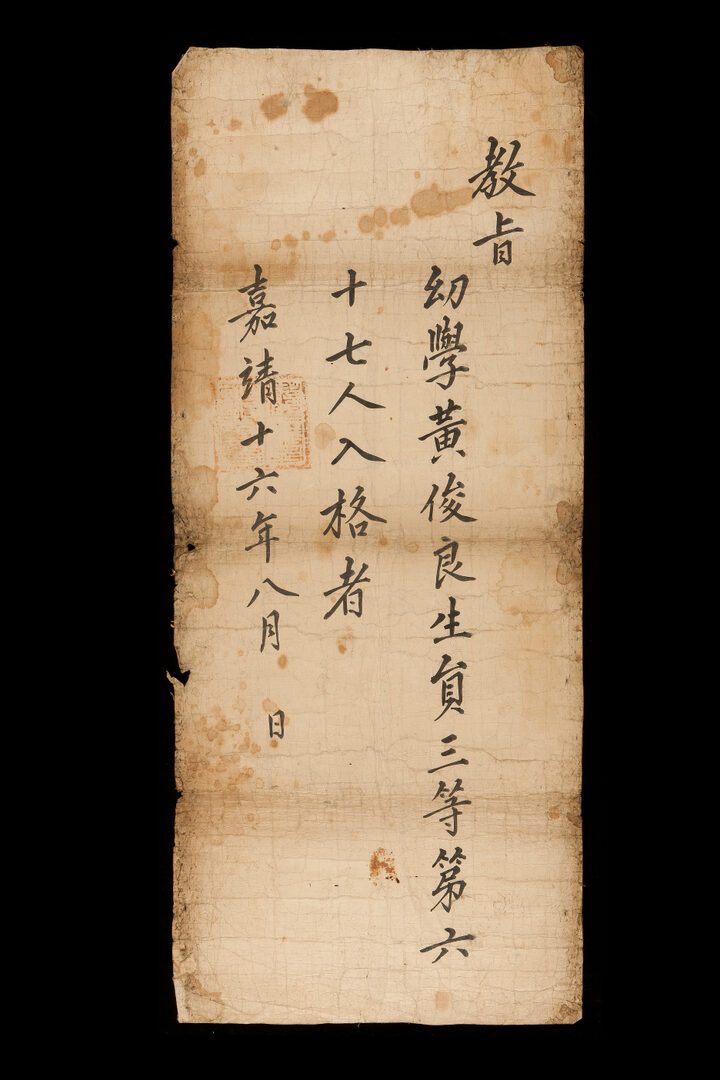 教旨
幼學黃俊良生員三等第六
十七人入格者
嘉靖十六年八月 日